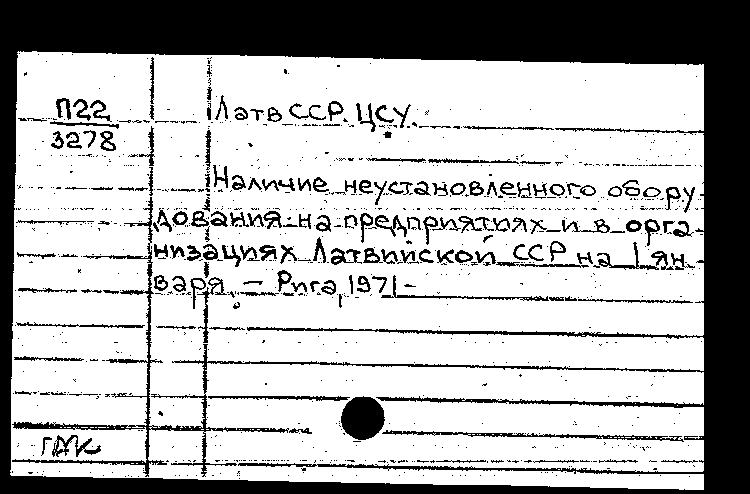 П22
3278
Латв ССР. ЦСУ.
Наличие неустановленного обору-
дования на предприятиях и в орга-
низациях Латвийской ССР на 1 ян-
варя. — Рига, 1971-